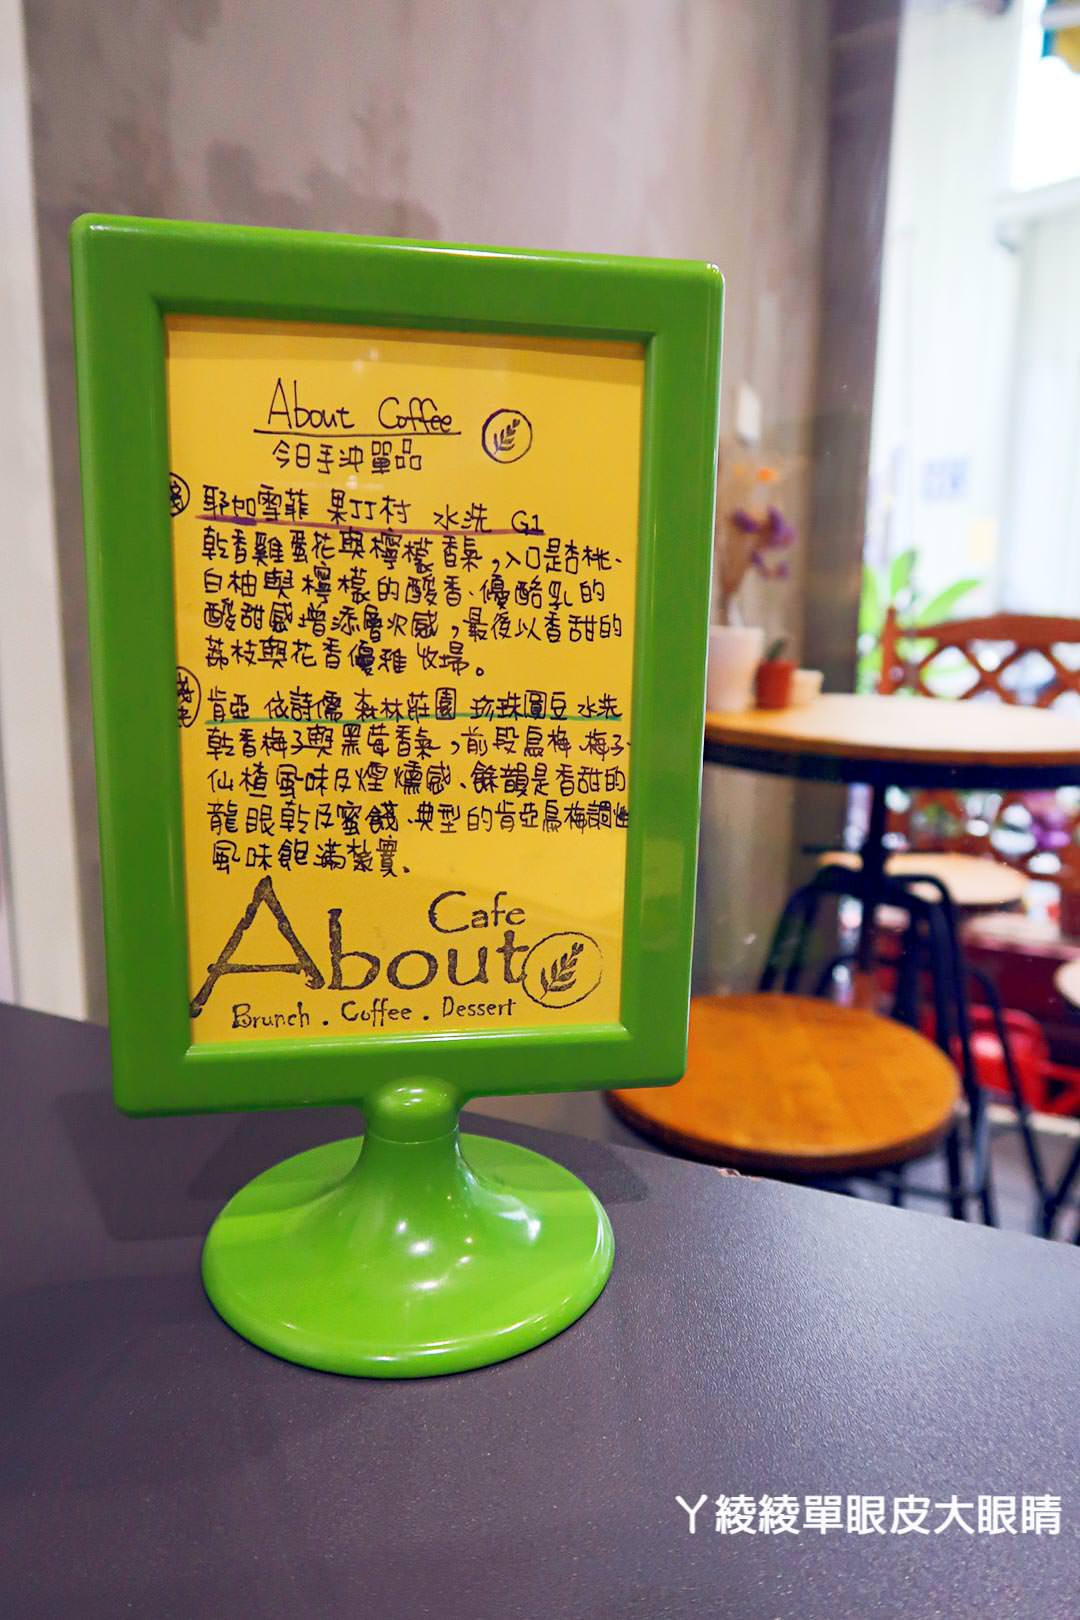 About Coffee
今日手沖單品
耶加雪菲 果丁丁村 水洗 G1
乾香雞蛋花與檸檬香氣,入口是杏桃、
白柚與檸檬的酸香、優酪乳的
酸甜感增添層次感,最後以香甜的
荔枝與花香優雅收場。
肯亞 依詩儒 森林莊園 珍珠圓豆 水洗
乾香梅子與黑莓香氣,前段烏梅、梅子、
仙楂風味及煙燻感、餘韻是香甜的
龍眼乾及蜜餞、典型的肯亞烏梅調性
風味飽滿紮實。
About Cafe
Brunch . Coffee . Dessert
ㄚ綾綾單眼皮大眼睛